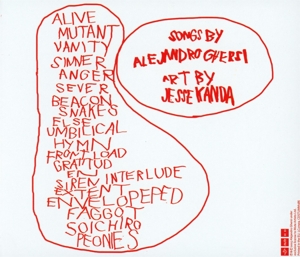 ALIVE
MUTANT
VANITY
SINNER
ANGER
SEVER
BEACON
SNAKES
ELSE
UMBILICAL
HYMN
FRONT LOAD
GRATITUD
EN
SIREN INTERLUDE
EXTENT
ENVELOPEPED
FAGGOT
SOICHIRO
PEONIES
SONGS BY
ALEJANDRO GHERSI
ART BY
JESSE KANDA